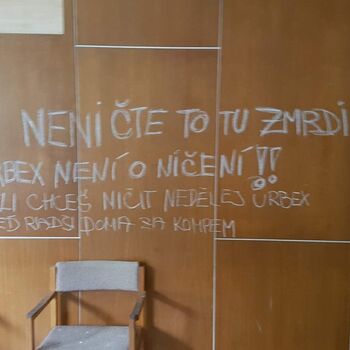 NENIČTE TO TU ZMRDI
RBEX NENÍ O NIČENÍ!!
LI CHCEŠ NIČIT NEDĚLEJ URBEX
EĎ RADŠI DOMA ZA KOMPEM